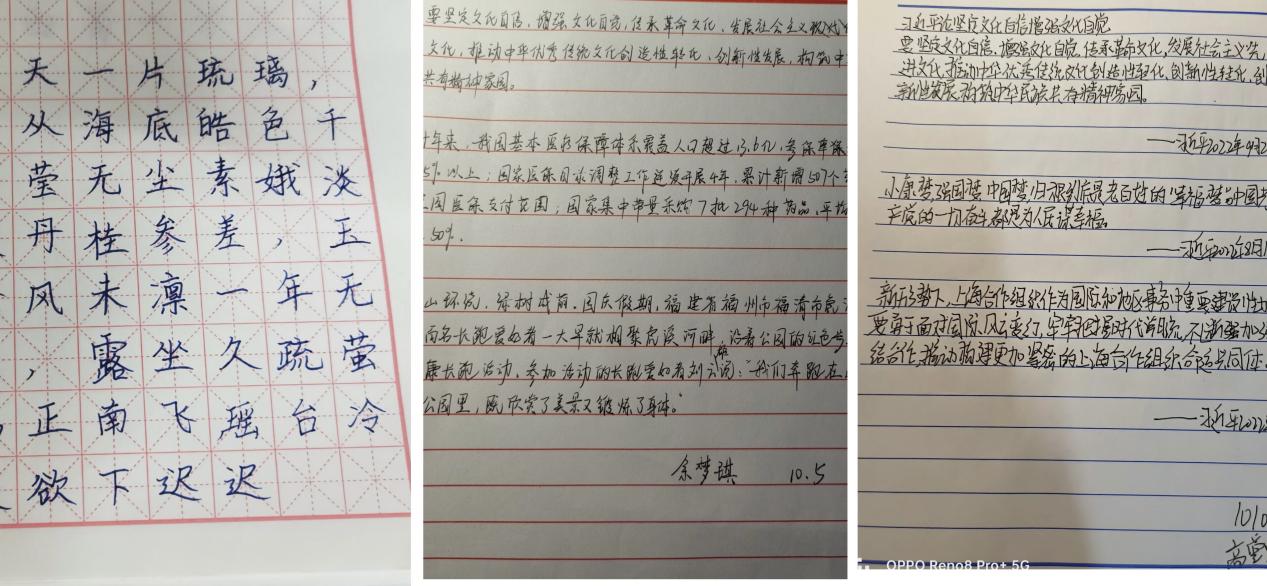 天一片琉璃，
从海底皓色千
莹无尘素娥淡
丹桂参差，玉
风未凛一年无
，露坐久疏萤
正南飞瑶台冷
欲下迟迟
要坚定文化自信，增强文化自觉，传承革命文化，发展社会主义
文化，推动中华优秀传统文化创造性转化、创新性发展，构筑中
共有精神家园。
十年来，我国基本医疗保障体系覆盖人口超过13.6亿，参保率
5%以上；国家医保目录调整工作连续开展4年，累计新增507个
国医保支付范围；国家集中带量采购7批294种药品，平均
50%。
山环绕，绿树成荫，国庆假期，福建省福州市福清市
百名长跑爱好者一大早就相聚 溪河畔，沿着公园的红色步
康长跑活动，参加活动的长跑爱好者刘 说："我们奔跑在
公园里，既欣赏了美景又锻炼了身体。"
余梦琪 10.5
习近平论坚定文化自信增强文化自觉
要坚定文化自信、增强文化自觉，传承革命文化，发展社会主义先
进文化，推动中华优秀传统文化创造性转化、创新性转化，创
新性发展，构筑中华民族共有精神家园。
——习近平2022年
小康梦、强国梦、中国梦，归根到底是老百姓的"幸福梦"。中国共
产党的一切奋斗都是为人民谋幸福。
——习近平2022年8月1
新形势下，上海合作组织作为国际和地区事务中重要建设性
要勇于面对国际风云变幻，牢牢把握时代潮流，不断加强
结合作，推动构建更加紧密的上海合作组织命运共同体。
——习近平2022
1010
高堂
OPPO Reno8 Pro+ 5G